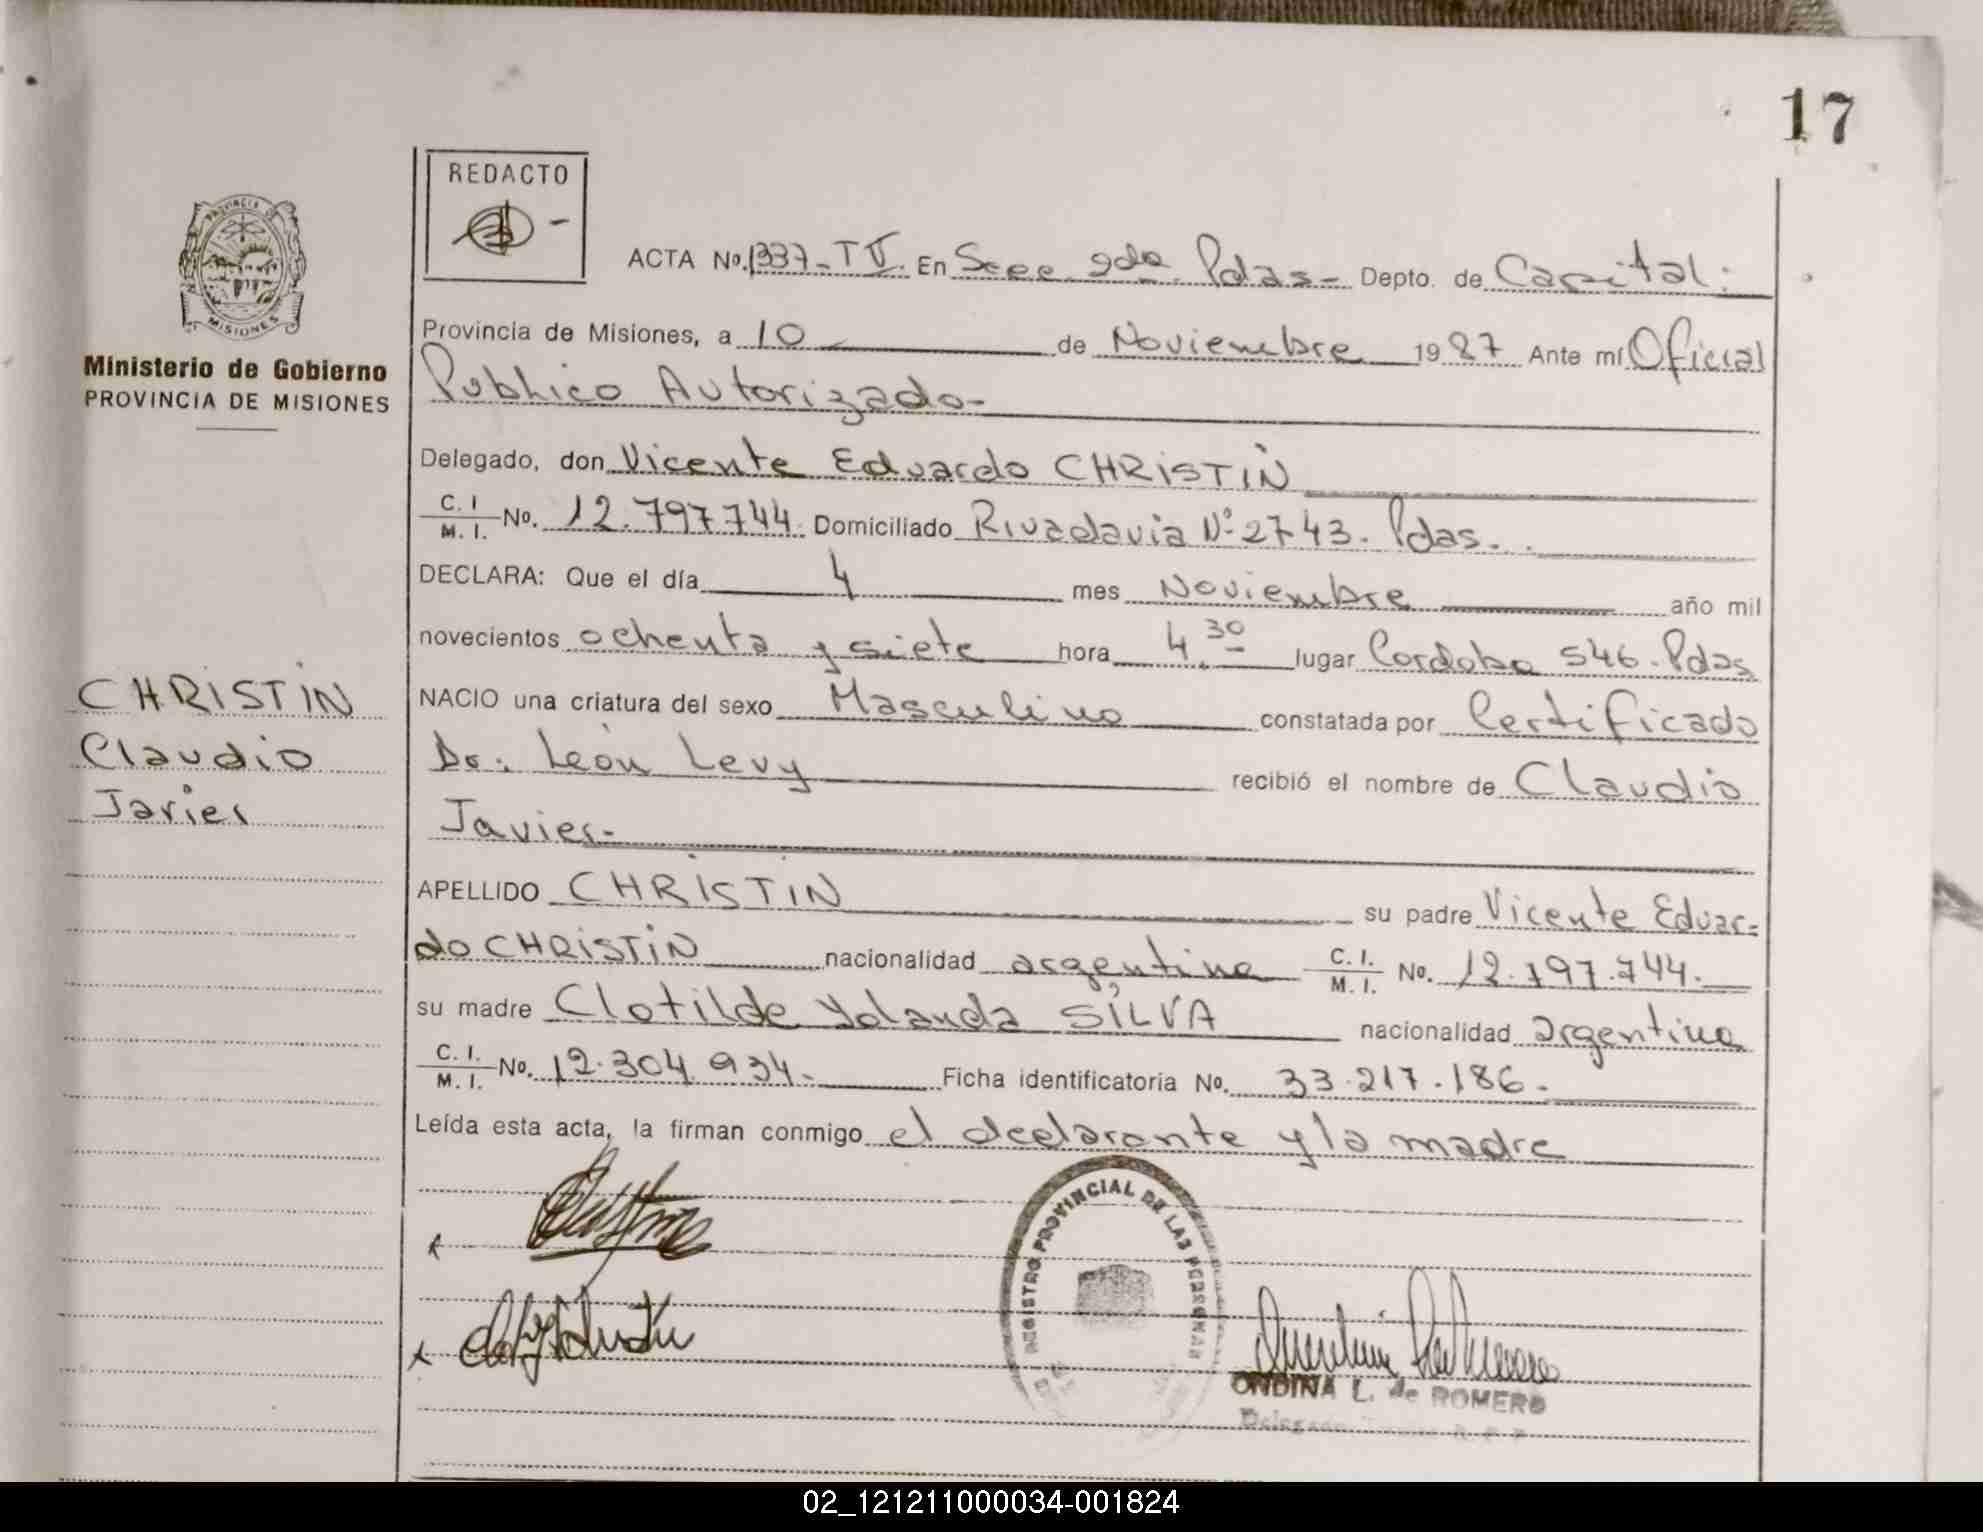 17
REDACTO
ACTA No. 1337-T V. En Secc 2da. Pdas- Depto. de Capital:
Provincia de Misiones, a 10 de Noviembre 1987 Ante mí Oficial
Ministerio de Gobierno
PROVINCIA DE MISIONES
Publico Autorizado-
Delegado, don Vicente Eduardo CHRISTIN
C. I. M. I. No. 12.797.744. Domiciliado Rivadavia Nº 2743. Pdas.
DECLARA: Que el día 4 mes Noviembre año mil
novecientos ochenta y siete hora 4.30 lugar Cordoba 546. Pdas
CHRISTIN
Claudio
Javier
NACIO una criatura del sexo Masculino constatada por Certificado
Dr. León Levy recibió el nombre de Claudio
Javier-
APELLIDO CHRISTIN su padre Vicente Eduar-
do CHRISTIN nacionalidad argentina C. I. M. I. No. 12.797.744.
su madre Clotilde Yolanda SILVA nacionalidad argentina
C. I. M. I. No. 12.304.934- Ficha identificatoria No. 33.217.186-
Leída esta acta, la firman conmigo el declarante y la madre
REGISTRO PROVINCIAL DE LAS PERSONAS
ONDINA L. de ROMERO
02_121211000034-001824